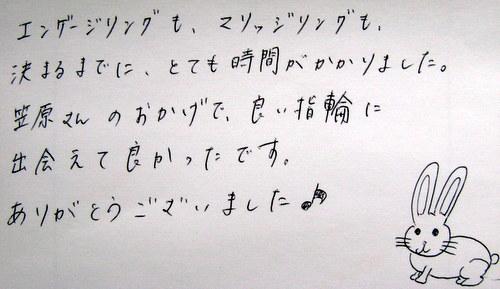 エンゲージリングも、マリッジリングも、
決まるまでに、とても時間がかかりました。
笠原さんのおかげで、良い指輪に
出会えて良かったです。
ありがとうございました♪